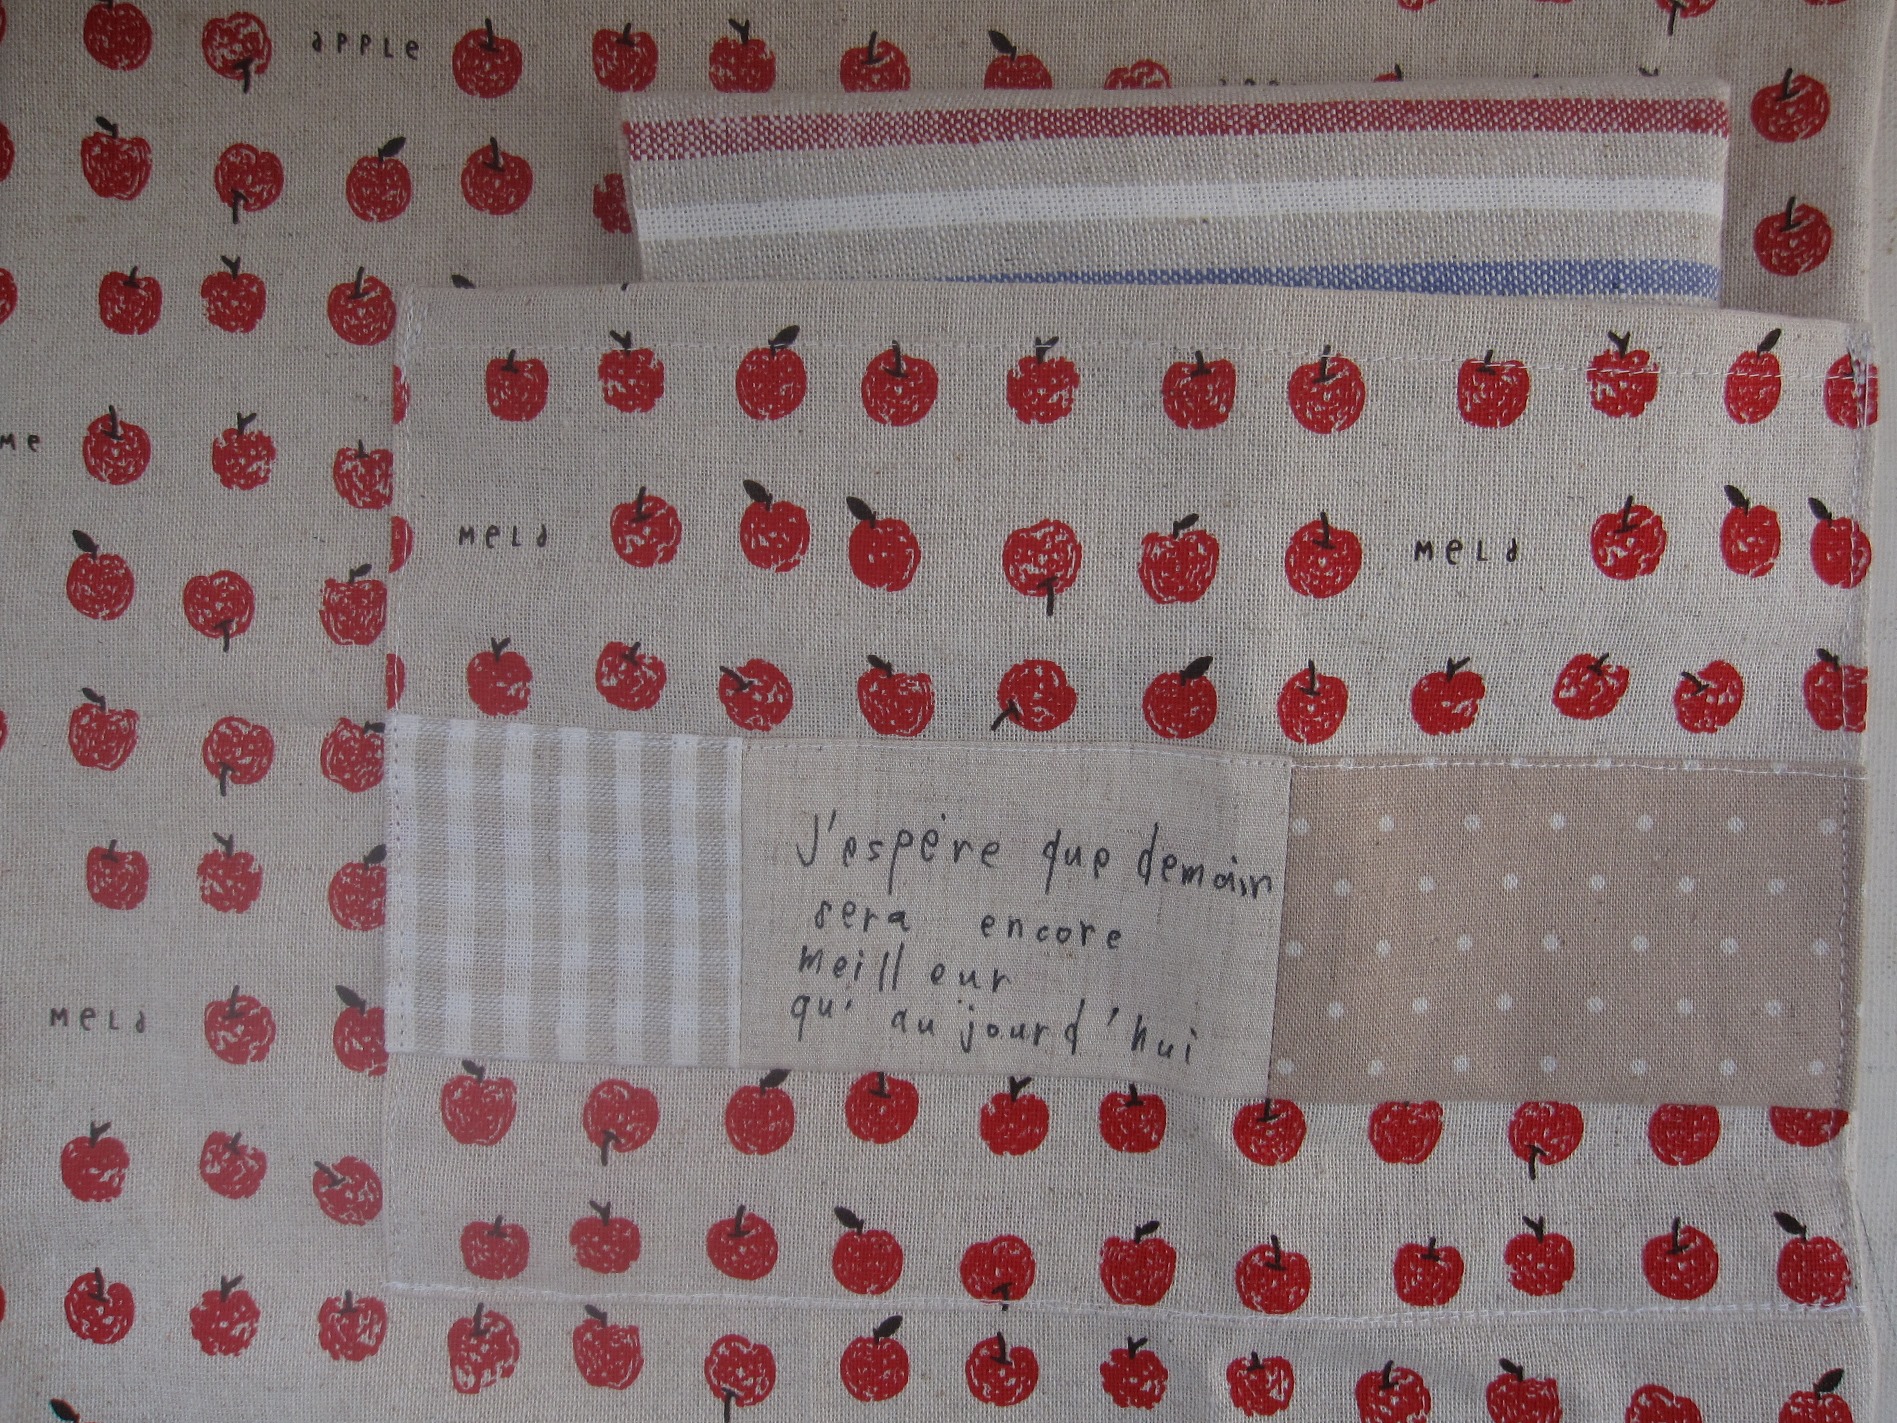 apple
me
mela
mela
J'espère que demain
sera encore
meilleur
qu'aujourd'hui
mela